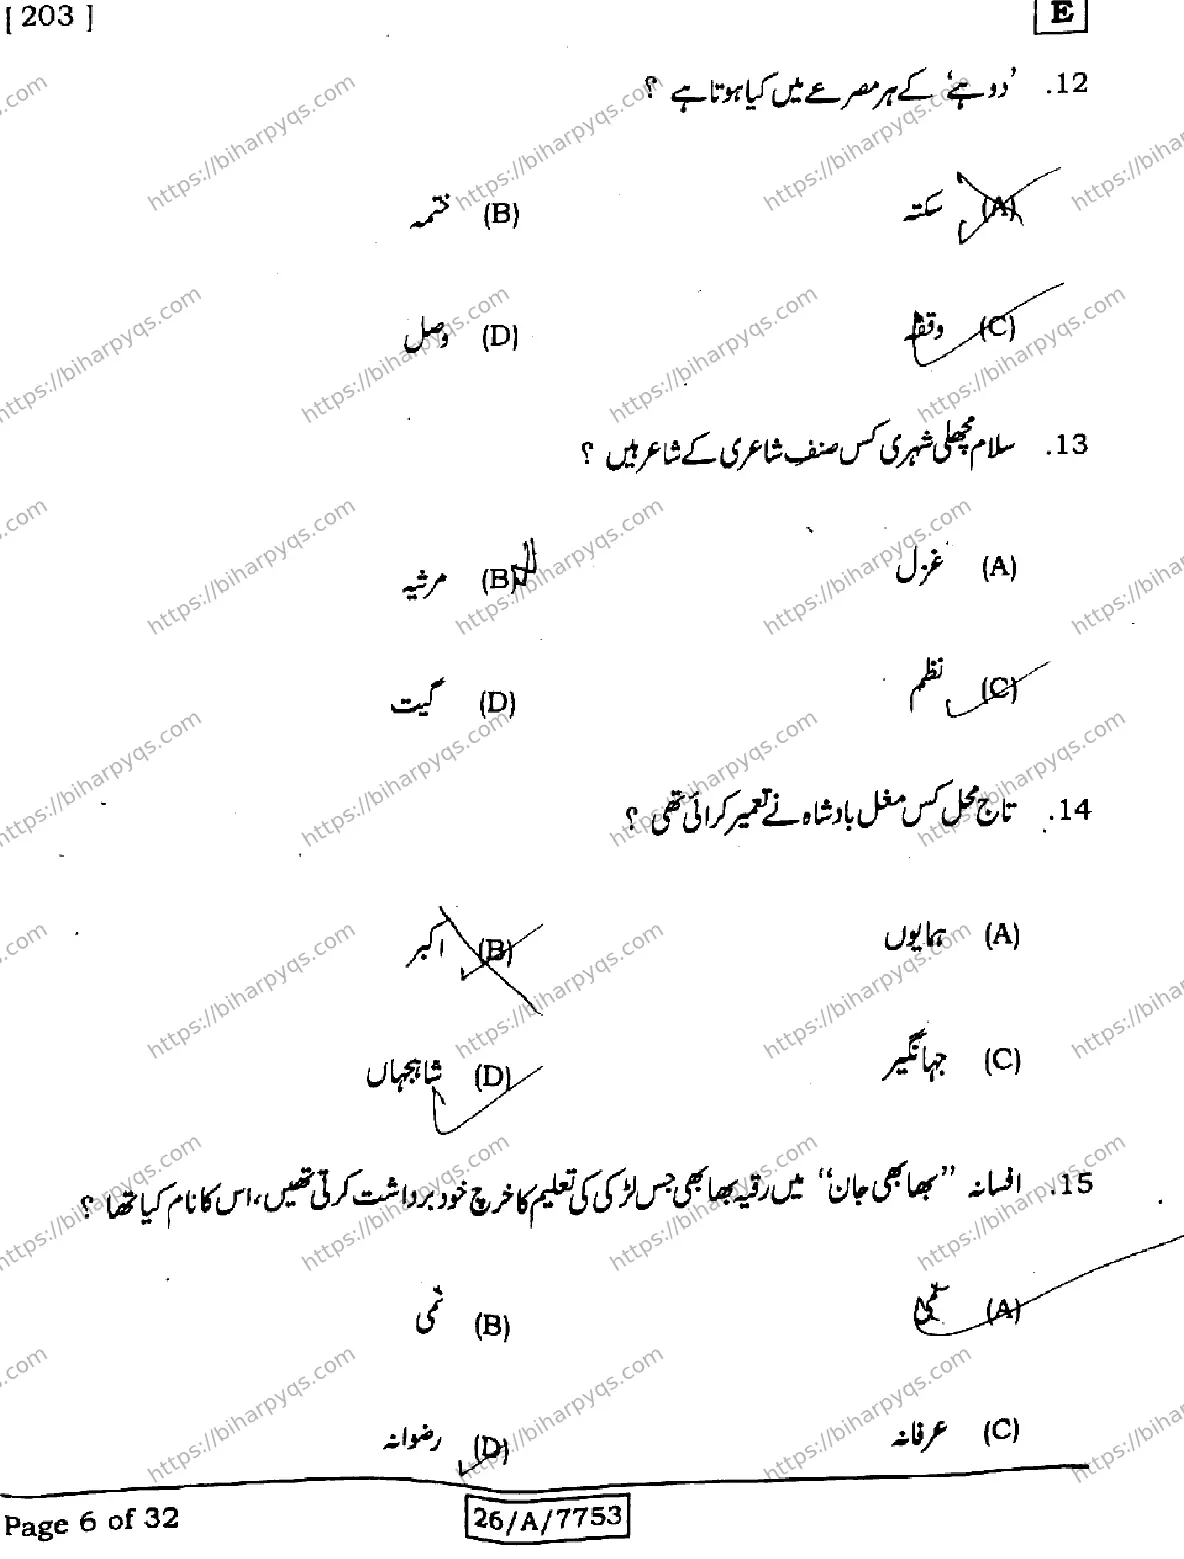 [ 203 ]
E
12. ’دوہے‘ کے ہر مصرعے میں کیا ہوتا ہے ؟
(A) سکتہ (B) ختمہ
(C) وقفہ (D) وصل
13. سلام مچھلی شہری کس صنف شاعری کے شاعر ہیں ؟
(A) غزل (B) مرثیہ
(C) نظم (D) گیت
14. تاج محل کس مغل بادشاہ نے تعمیر کرائی تھی ؟
(A) ہمایوں (B) اکبر
(C) جہانگیر (D) شاہجہاں
15. افسانہ ”بھابھی جان“ میں رقیہ بھابھی جس لڑکی کی تعلیم کا خرچ خود برداشت کرتی تھیں، اس کا نام کیا تھا ؟
(A) سلمیٰ (B) ثمی
(C) عرفانہ (D) رضوانہ
Page 6 of 32
26/A/7753
https://biharpyqs.com